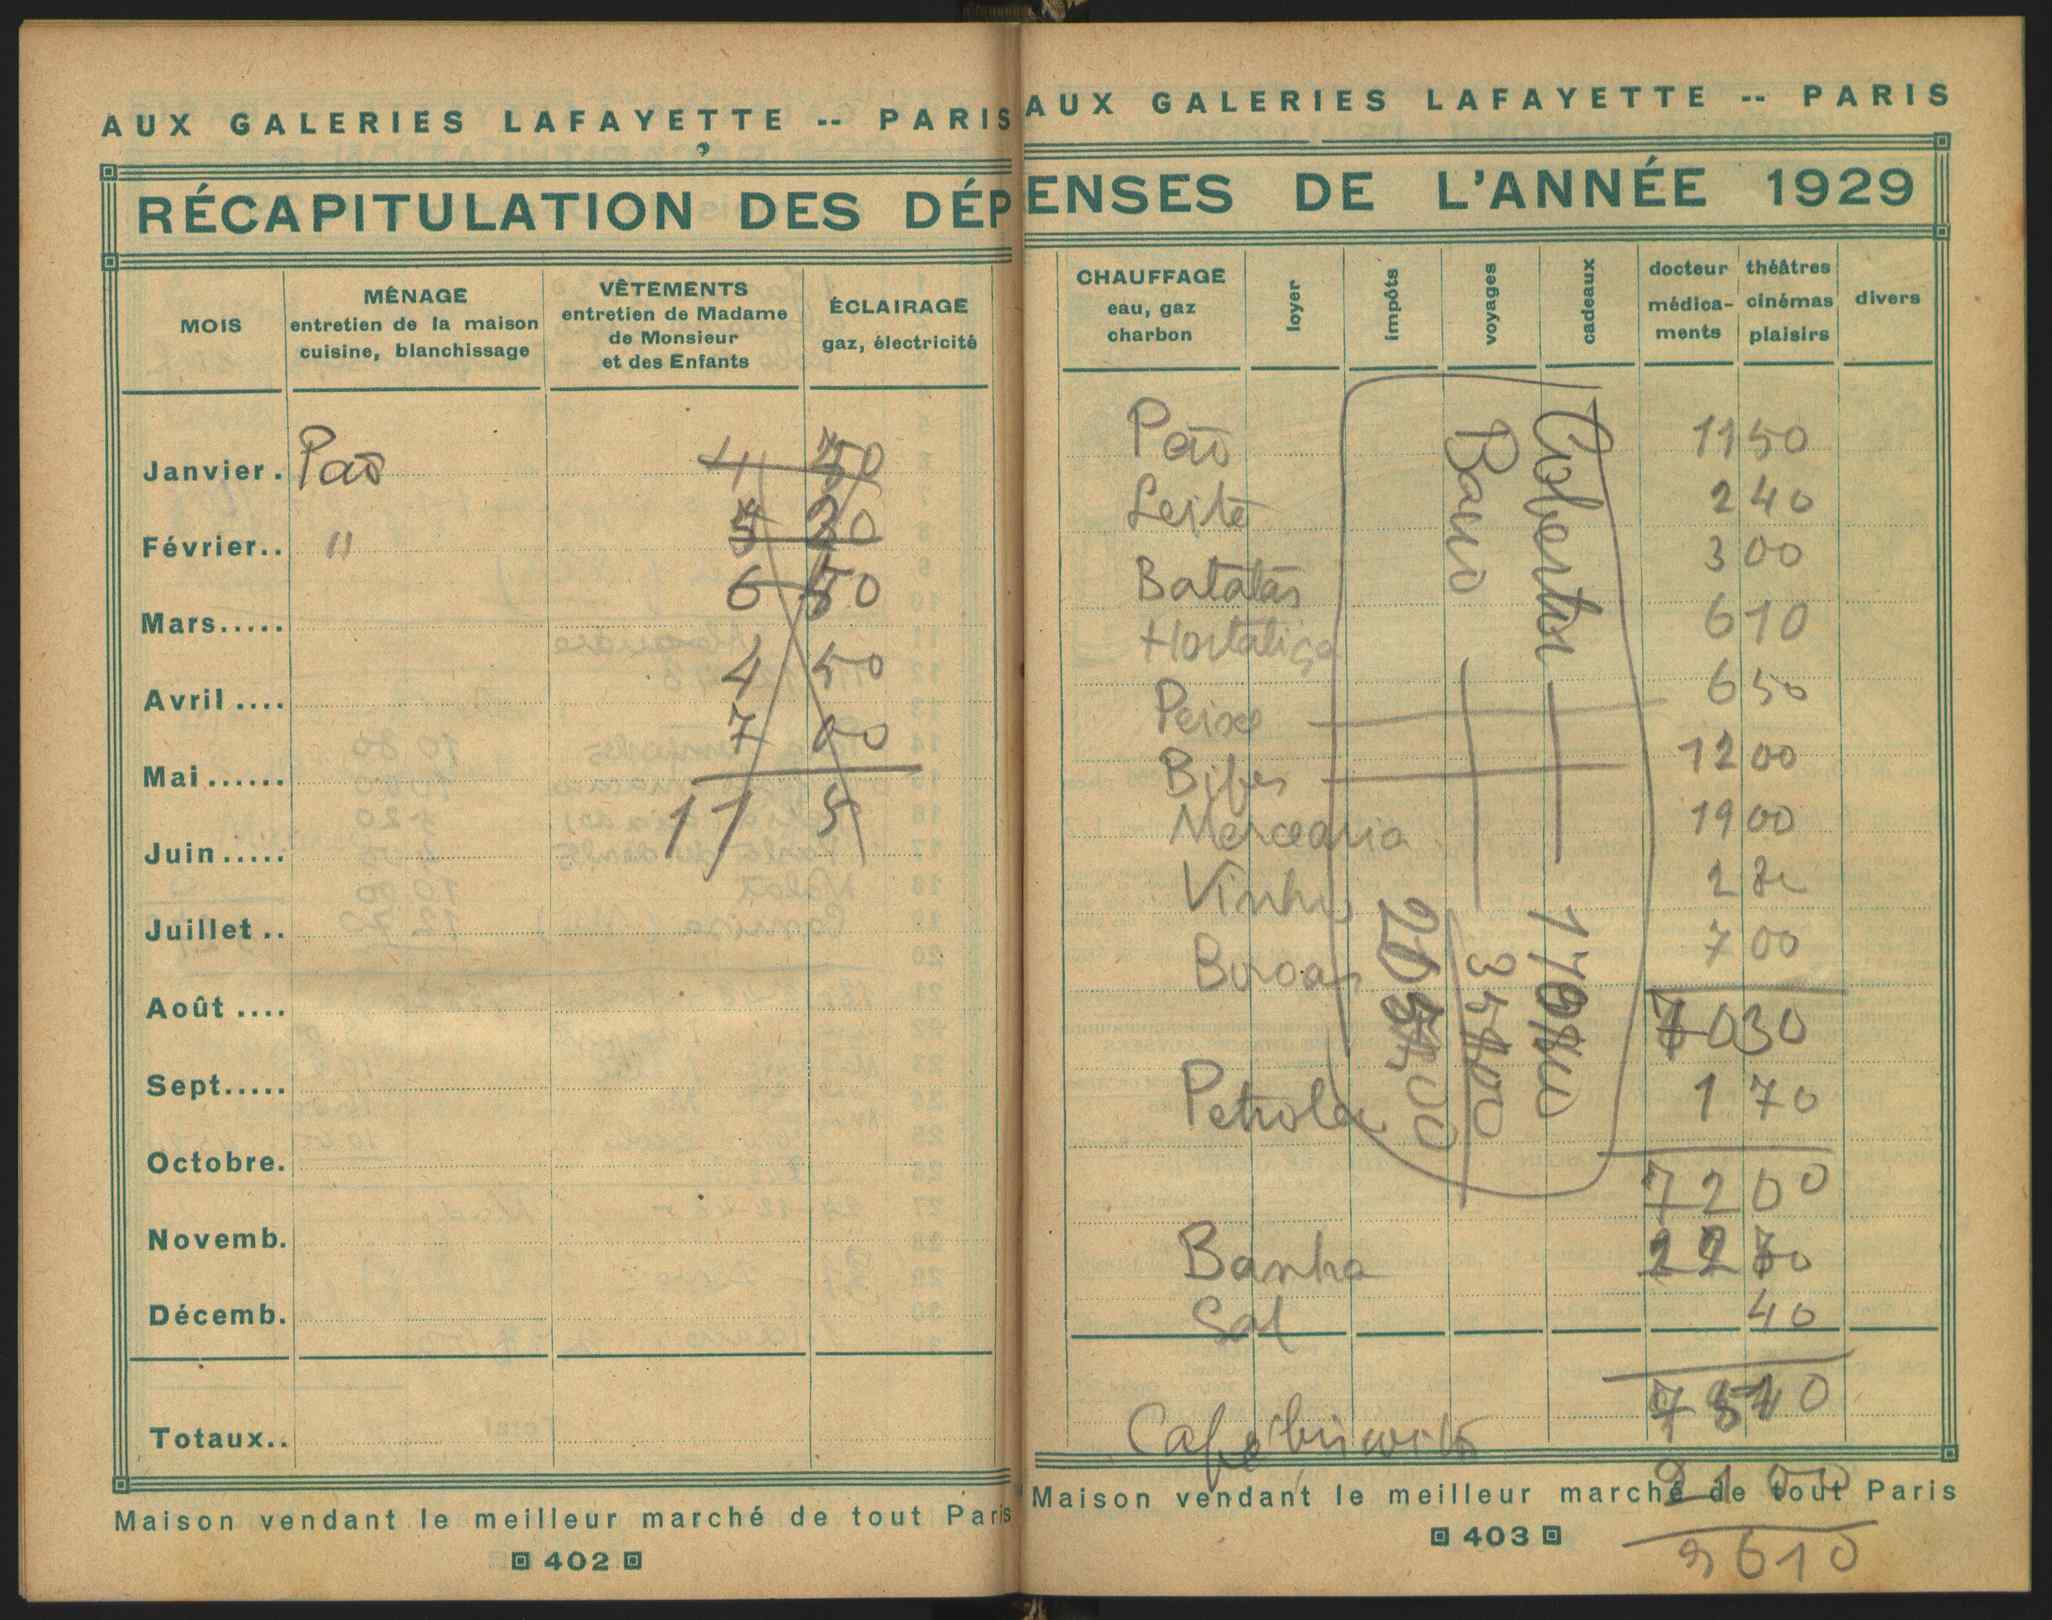 AUX GALERIES LAFAYETTE -- PARIS
RÉCAPITULATION DES DÉP
MOIS
MÉNAGE
entretien de la maison
cuisine, blanchissage
VÊTEMENTS
entretien de Madame
de Monsieur
et des Enfants
ÉCLAIRAGE
gaz, électricité
Janvier. Paõ 4 50
Février.. " 5 20
6 50
Mars.....
4 50
Avril ....
7 00
Mai......
17 5
Juin.....
Juillet..
Août ....
Sept.....
Octobre.
Novemb.
Décemb.
Totaux..
Maison vendant le meilleur marché de tout Paris
402
AUX GALERIES LAFAYETTE -- PARIS
ENSES DE L'ANNÉE 1929
CHAUFFAGE
eau, gaz
charbon
loyer
impôts
voyages
cadeaux
docteur
médica-
ments
théâtres
cinémas
plaisirs
divers
Paõ 11 50
Leite 2 40
Batatas 3 00
Hortaliça 6 10
Peixe 6 50
Bifes 12 00
Mercearia 19 00
Vinho 2 80
Buroas 7 00
70 30
Petroleo 1 70
72 00
Banha 2 70
Sal 40
Cobertor
Banho
Café
21 00
9610
Maison vendant le meilleur marché de tout Paris
403